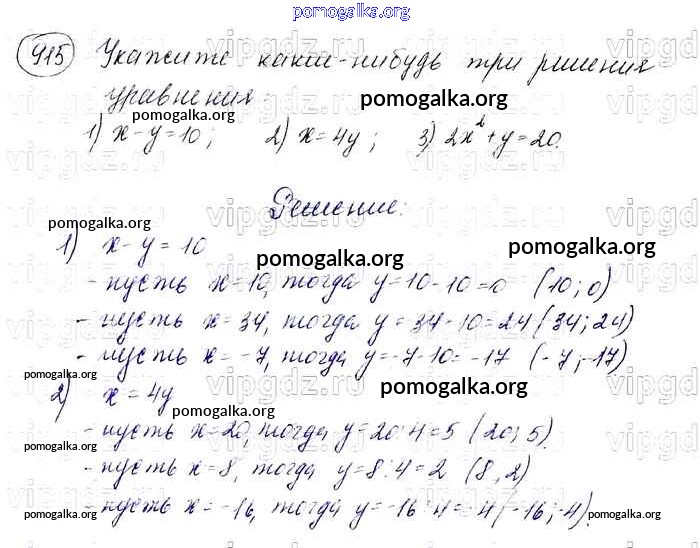 pomogalka.org
915 Укажите какие-нибудь три решения
уравнения:
pomogalka.org
pomogalka.org
1) x - y = 10; 2) x = 4y; 3) 2x² + y = 20.
Решение:
pomogalka.org
1) x - y = 10
pomogalka.org
pomogalka.org
- пусть x = 10, тогда y = 10 - 10 = 0 (10; 0)
- пусть x = 34, тогда y = 34 - 10 = 24 (34; 24)
- пусть x = -7, тогда y = -7 - 10 = -17 (-7; -17)
pomogalka.org
pomogalka.org
2) x = 4y
pomogalka.org
- пусть x = 20, тогда y = 20 : 4 = 5 (20; 5).
pomogalka.org
- пусть x = 8, тогда y = 8 : 4 = 2 (8, 2)
- пусть x = -16, тогда y = -16 : 4 = -4 (-16; -4).
pomogalka.org
pomogalka.org
pomogalka.org
pomogalka.org